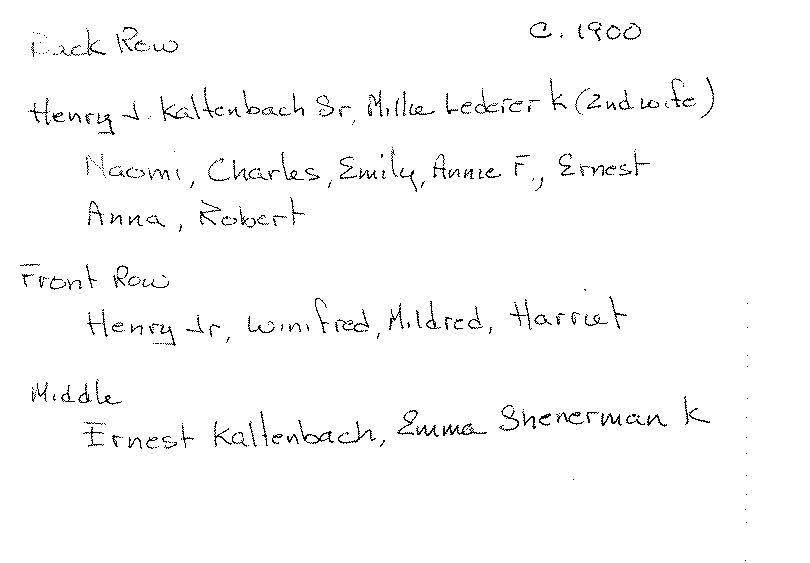 Back Row
C. 1900
Henry J. Kaltenbach Sr, Millie Lederer K (2nd wife)
Naomi, Charles, Emily, Annie F., Ernest
Anna, Robert
Front Row
Henry Jr, Winifred, Mildred, Harriet
Middle
Ernest Kaltenbach, Emma Shenerman K